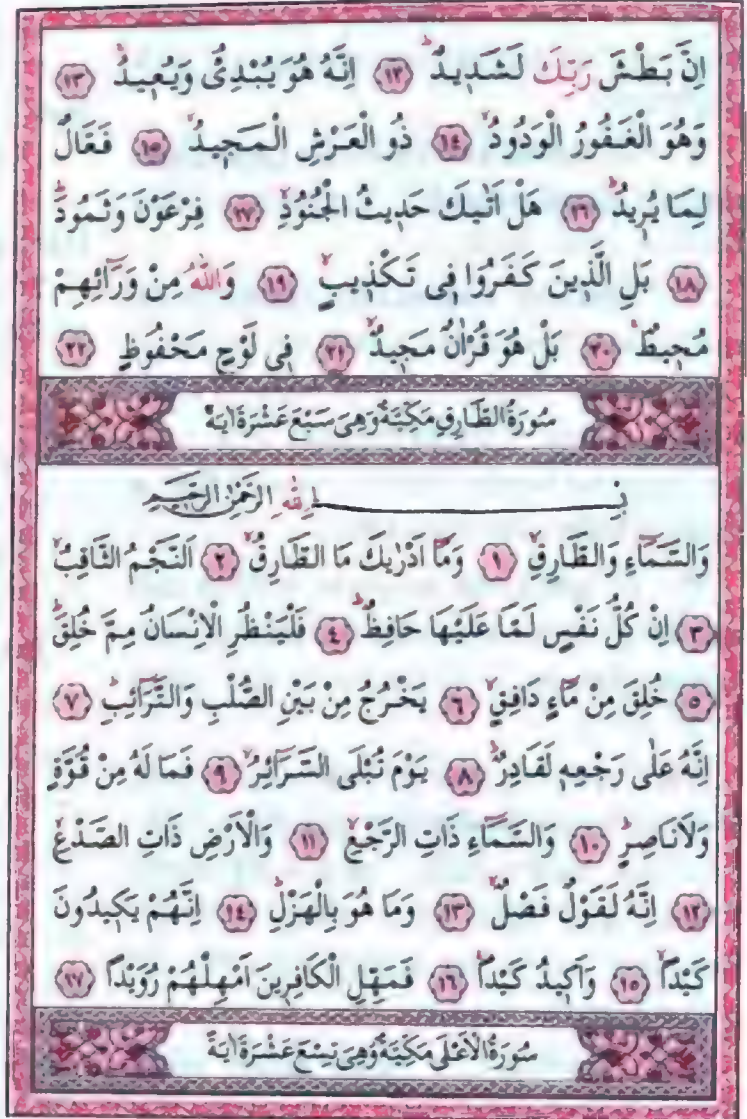 اِنَّ بَطْشَ رَبِّكَ لَشَد۪يدٌۜ ﴿١٢﴾ اِنَّهُ هُوَ يُبْدِئُ وَيُع۪يدُۚ ﴿١٣﴾
وَهُوَ الْغَفُورُ الْوَدُودُۙ ﴿١٤﴾ ذُو الْعَرْشِ الْمَج۪يدُۙ ﴿١٥﴾ فَعَّالٌ
لِمَا يُر۪يدُۜ ﴿١٦﴾ هَلْ اَتٰيكَ حَد۪يثُ الْجُنُودِۙ ﴿١٧﴾ فِرْعَوْنَ وَثَمُودَۜ
﴿١٨﴾ بَلِ الَّذ۪ينَ كَفَرُوا ف۪ي تَكْذ۪يبٍۙ ﴿١٩﴾ وَاللّٰهُ مِنْ وَرَٓائِهِمْ
مُح۪يطٌۚ ﴿٢٠﴾ بَلْ هُوَ قُرْاٰنٌ مَج۪يدٌۙ ﴿٢١﴾ ف۪ي لَوْحٍ مَحْفُوظٍ ﴿٢٢﴾
سُورَةُ الطَّارِقِ مَكِّيَّةٌ وَهِيَ سَبْعَ عَشْرَةَ اٰيَةً
بِسْمِ اللّٰهِ الرَّحْمٰنِ الرَّح۪يمِ
وَالسَّمَٓاءِ وَالطَّارِقِۙ ﴿١﴾ وَمَٓا اَدْرٰيكَ مَا الطَّارِقُۙ ﴿٢﴾ اَلنَّجْمُ الثَّاقِبُۙ
﴿٣﴾ اِنْ كُلُّ نَفْسٍ لَمَّا عَلَيْهَا حَافِظٌۜ ﴿٤﴾ فَلْيَنْظُرِ الْاِنْسَانُ مِمَّ خُلِقَۜ
﴿٥﴾ خُلِقَ مِنْ مَٓاءٍ دَافِقٍۙ ﴿٦﴾ يَخْرُجُ مِنْ بَيْنِ الصُّلْبِ وَالتَّرَٓائِبِۜ ﴿٧﴾
اِنَّهُ عَلٰى رَجْعِه۪ لَقَادِرٌۜ ﴿٨﴾ يَوْمَ تُبْلَى السَّرَٓائِرُۙ ﴿٩﴾ فَمَا لَهُ مِنْ قُوَّةٍ
وَلَا نَاصِرٍۜ ﴿١٠﴾ وَالسَّمَٓاءِ ذَاتِ الرَّجْعِۙ ﴿١١﴾ وَالْاَرْضِ ذَاتِ الصَّدْعِۙ
﴿١٢﴾ اِنَّهُ لَقَوْلٌ فَصْلٌۙ ﴿١٣﴾ وَمَا هُوَ بِالْهَزْلِۜ ﴿١٤﴾ اِنَّهُمْ يَك۪يدُونَ
كَيْداًۙ ﴿١٥﴾ وَاَك۪يدُ كَيْداًۚ ﴿١٦﴾ فَمَهِّلِ الْكَافِر۪ينَ اَمْهِلْهُمْ رُوَيْداً ﴿١٧﴾
سُورَةُ الْاَعْلٰى مَكِّيَّةٌ وَهِيَ تِسْعَ عَشْرَةَ اٰيَةً